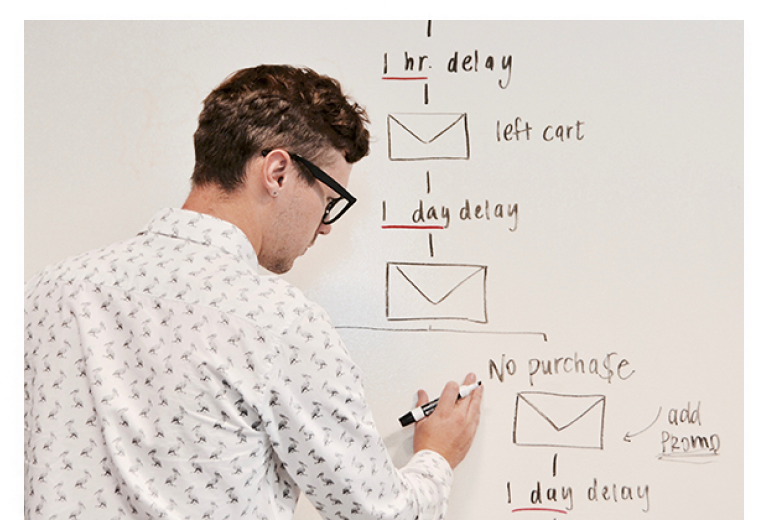 1 hr. delay
left cart
1 day delay
No purcha$e
add
PROMO
1 day delay